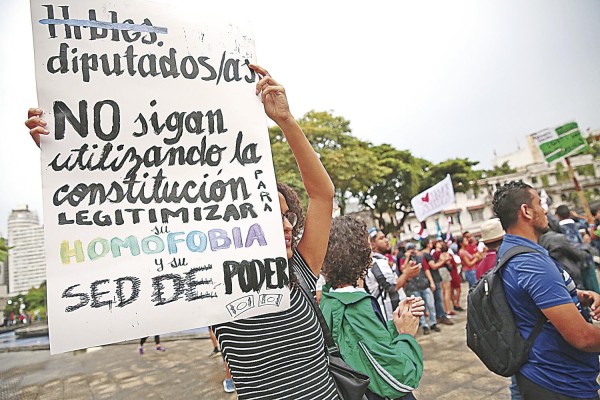 H.bles.
diputados/as
NO sigan
utilizando la
constitución PARA
LEGITIMIZAR
su
HOMOFOBIA
y su
SED DE PODER